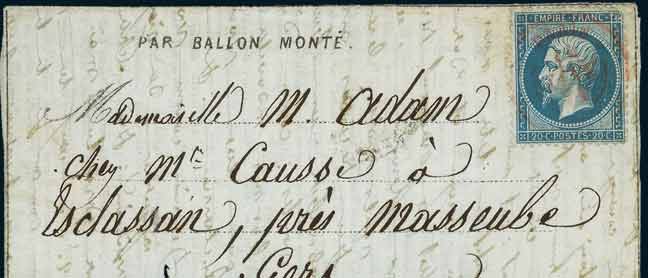 EMPIRE FRANC
PAR BALLON MONTÉ.
20 C POSTES 20 C
Mademoiselle M. Adam
chez Mr Causse à
Esclassan, près Masseube
Gers